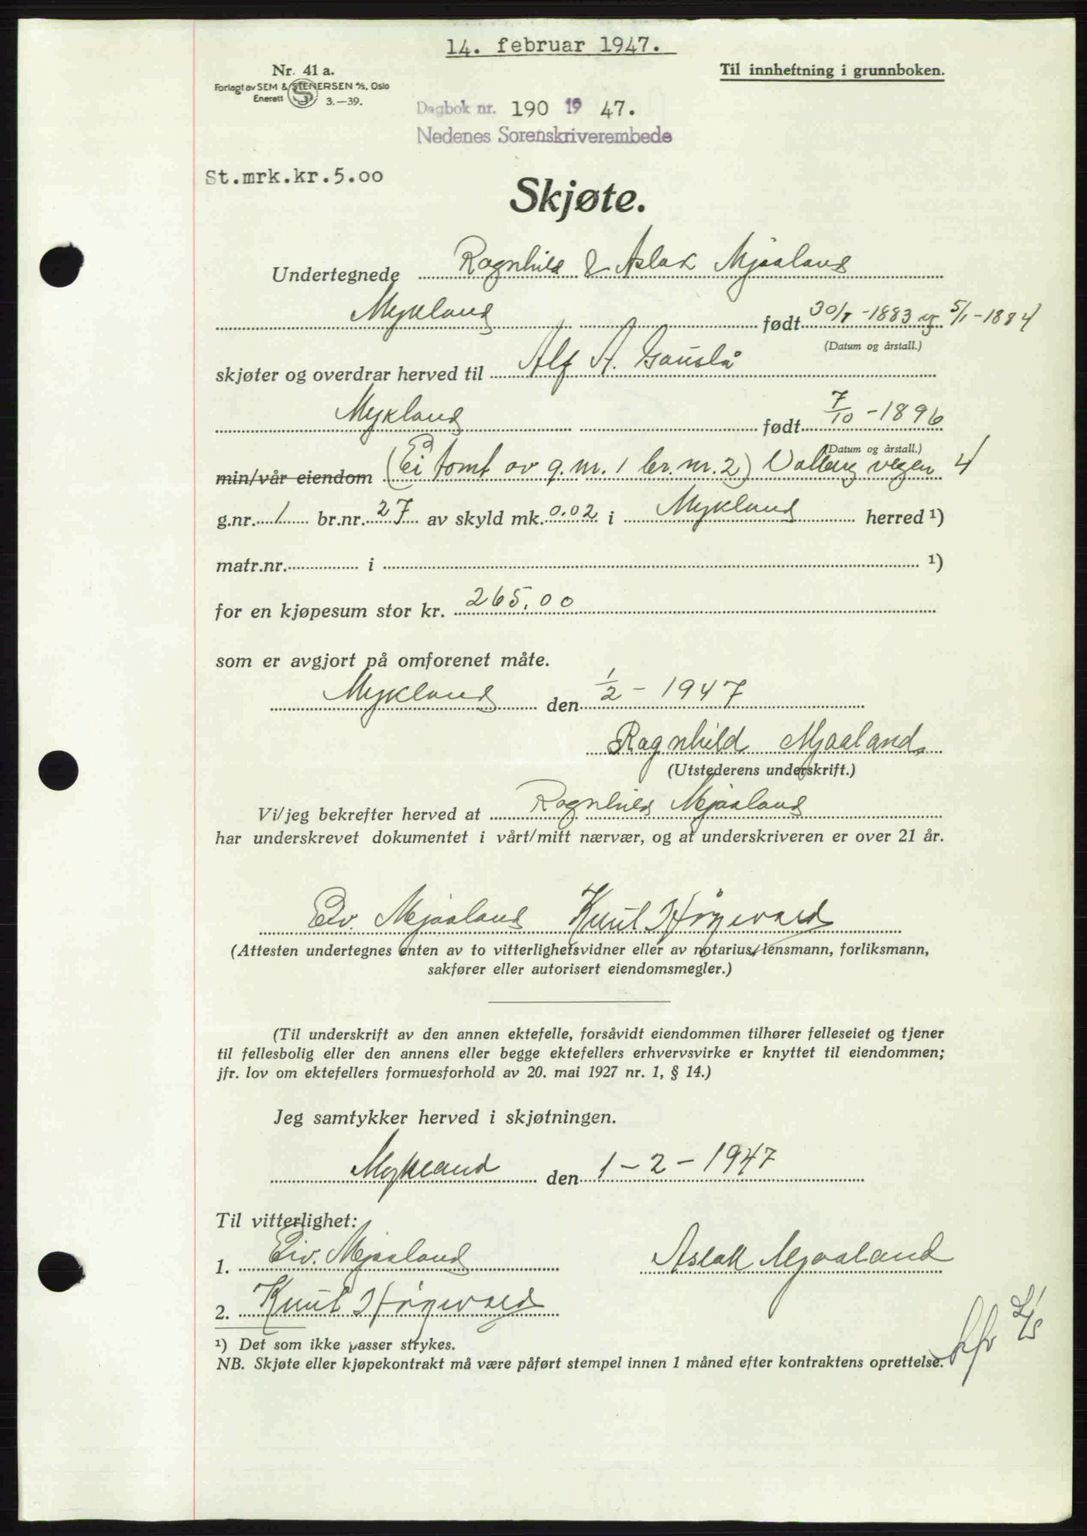 14. februar 1947.
Nr. 41 a.
Forlagt av SEM & STENERSEN A/S, Oslo
Enerett S 3.—39.
Til innheftning i grunnboken.
Dagbok nr. 190 19 47.
Nedenes Sorenskriverembede
St.mrk.kr.5.00
Skjøte.
Undertegnede Ragnhild & Aslak Mjaaland
Mykland født 30/8-1883 og 5/1-1884
(Datum og årstall.)
skjøter og overdrar herved til Alf A. Gauslå
Mykland født 7/10-1896
(Datum og årstall.)
min/vår eiendom (Ei tomt av g.nr. 1 br.nr. 2) vegen 4
g.nr. 1 br.nr. 27 av skyld mk. 0.02 i Mykland herred ¹)
matr.nr. i ¹)
for en kjøpesum stor kr. 265,00
som er avgjort på omforenet måte.
Mykland den 1/2-1947
Ragnhild Mjaaland
(Utstederens underskrift.)
Vi/jeg bekrefter herved at Ragnhild Mjaaland
har underskrevet dokumentet i vårt/mitt nærvær, og at underskriveren er over 21 år.
Eiv. Mjaaland Knut Høgevard
(Attesten undertegnes enten av to vitterlighetsvidner eller av notarius, lensmann, forliksmann,
sakfører eller autorisert eiendomsmegler.)
(Til underskrift av den annen ektefelle, forsåvidt eiendommen tilhører felleseiet og tjener
til fellesbolig eller den annens eller begge ektefellers erhvervsvirke er knyttet til eiendommen;
jfr. lov om ektefellers formuesforhold av 20. mai 1927 nr. 1, § 14.)
Jeg samtykker herved i skjøtningen.
Mykland den 1-2-1947
Til vitterlighet:
1. Eiv. Mjaaland
Aslak Mjaaland
2. Knut Høgevard
¹) Det som ikke passer strykes.
NB. Skjøte eller kjøpekontrakt må være påført stempel innen 1 måned efter kontraktens oprettelse.